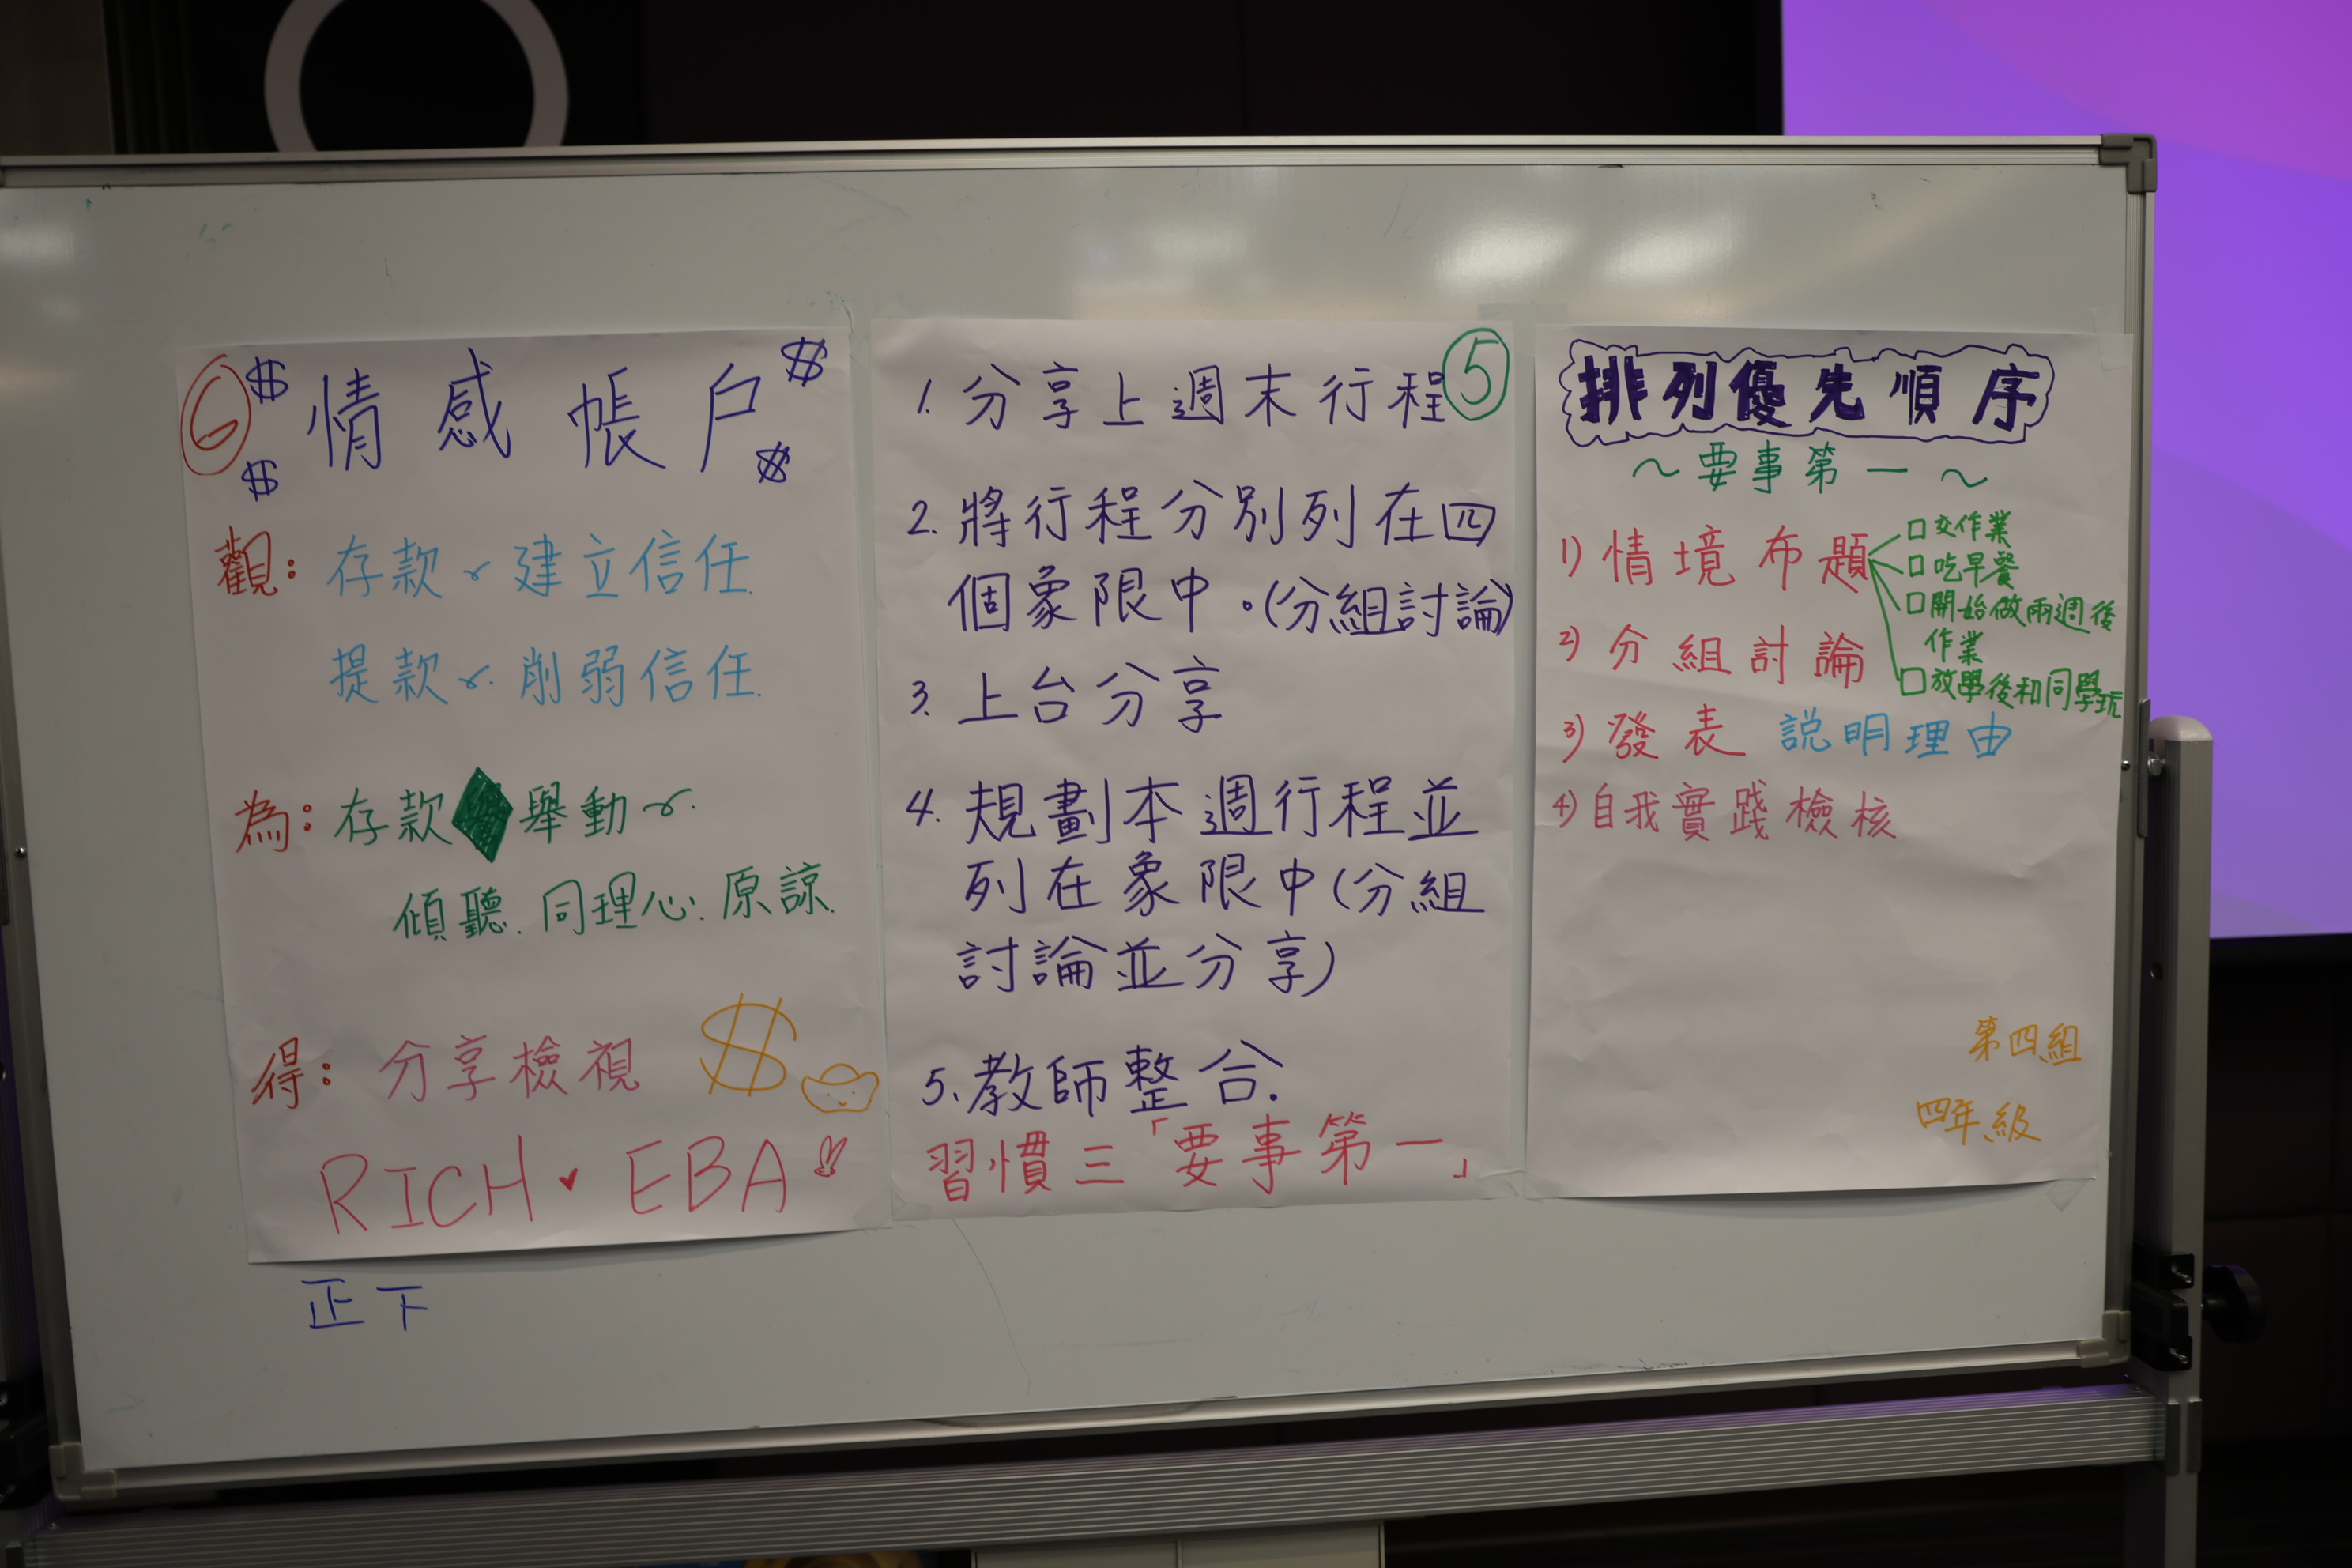 ⑥ $ 情感帳户 $
$ $
觀：存款 建立信任.
提款 削弱信任.
為：存款 舉動
傾聽. 同理心. 原諒.
得：分享檢視 $
RICH EBA
正下
⑤
1. 分享上週末行程
2. 將行程分別列在四
個象限中。(分組討論)
3. 上台分享
4. 規劃本週行程並
列在象限中(分組
討論並分享)
5. 教師整合.
習慣三「要事第一」
排列優先順序
～要事第一～
1) 情境布題
□交作業
□吃早餐
□開始做兩週後
作業
□放學後和同學玩
2) 分組討論
3) 發表 說明理由
4) 自我實踐檢核
第四組
四年級